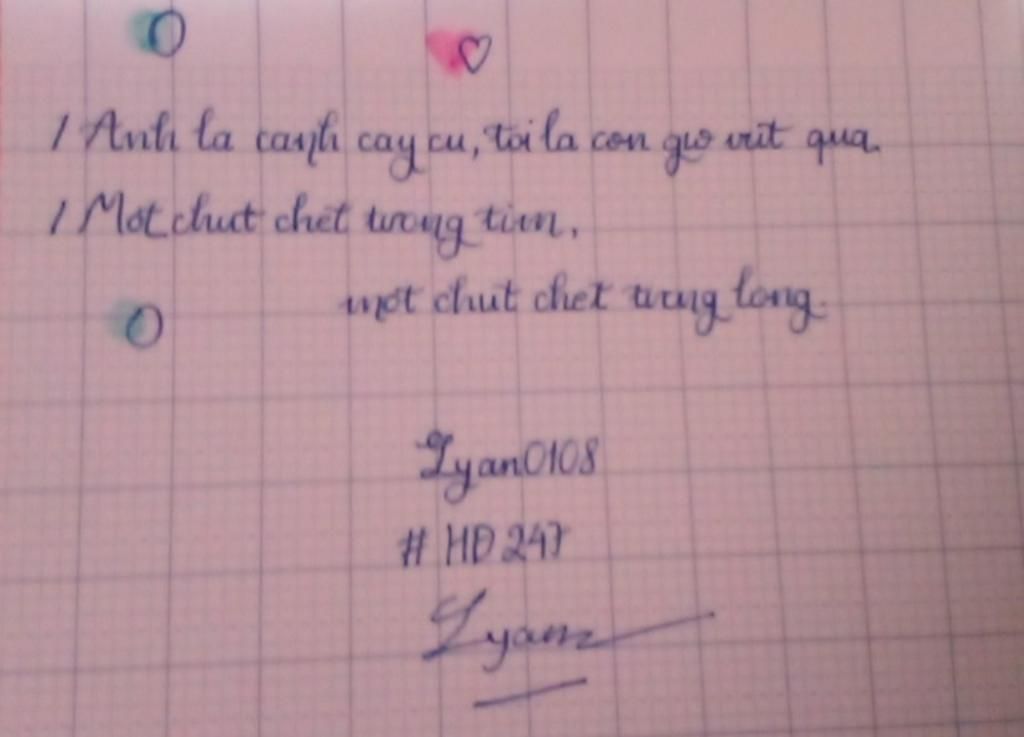 / Anh la canh cay cu, toi la con gio vut qua.
/ Mot chut chet trong tim,
mot chut chet trong long.
Lyan0108
# HĐ 247
Lyanz